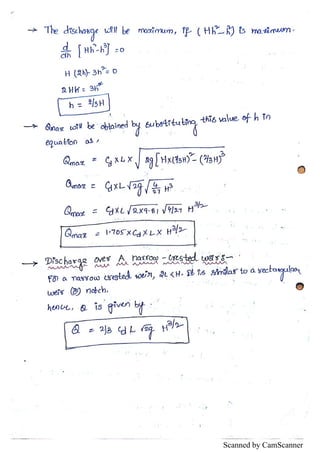 → The discharge will be maximum, if (Hh²-h³) is maximum.
d/dh [Hh²-h³] = 0
H (2h)- 3h² = 0
2Hh = 3h²
h = 2/3H
→ Qmax will be obtained by substituting this value of h in
equation as,
Qmax = Cd×L×√2g[H×(2/3H)²-(2/3H)³
Qmax = Cd×L√2g √4/27 H³
Qmax = Cd×L √2×9.81 √4/27 H^3/2
Qmax = 1.705×Cd×L× H^3/2
→ Discharge over A narrow-crested weirs-
For a narrow crested weir, 2L<H. It is similar to a rectangular
weir (or) notch.
hence, Q is given by
Q = 2/3 Cd L √2g H^3/2
Scanned by CamScanner